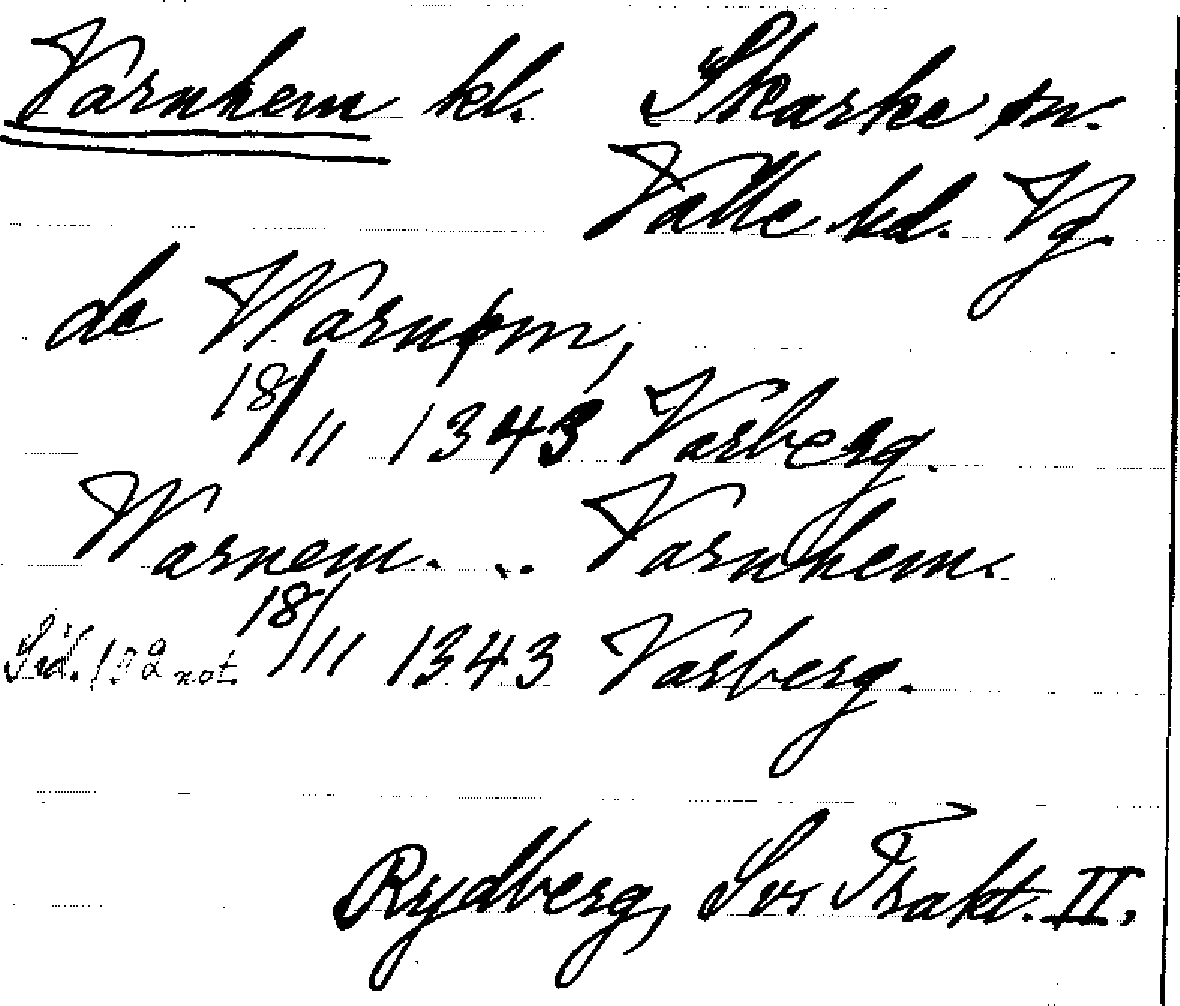 Varnhem kl. Skarke sn.
Valle hd. Vg.
de Warnæm,
18/11 1343 Varberg.
Warnem. .. Varnhem.
Sid. 192 not. 18/11 1343 Varberg.
Rydberg, Sv. Trakt. II.